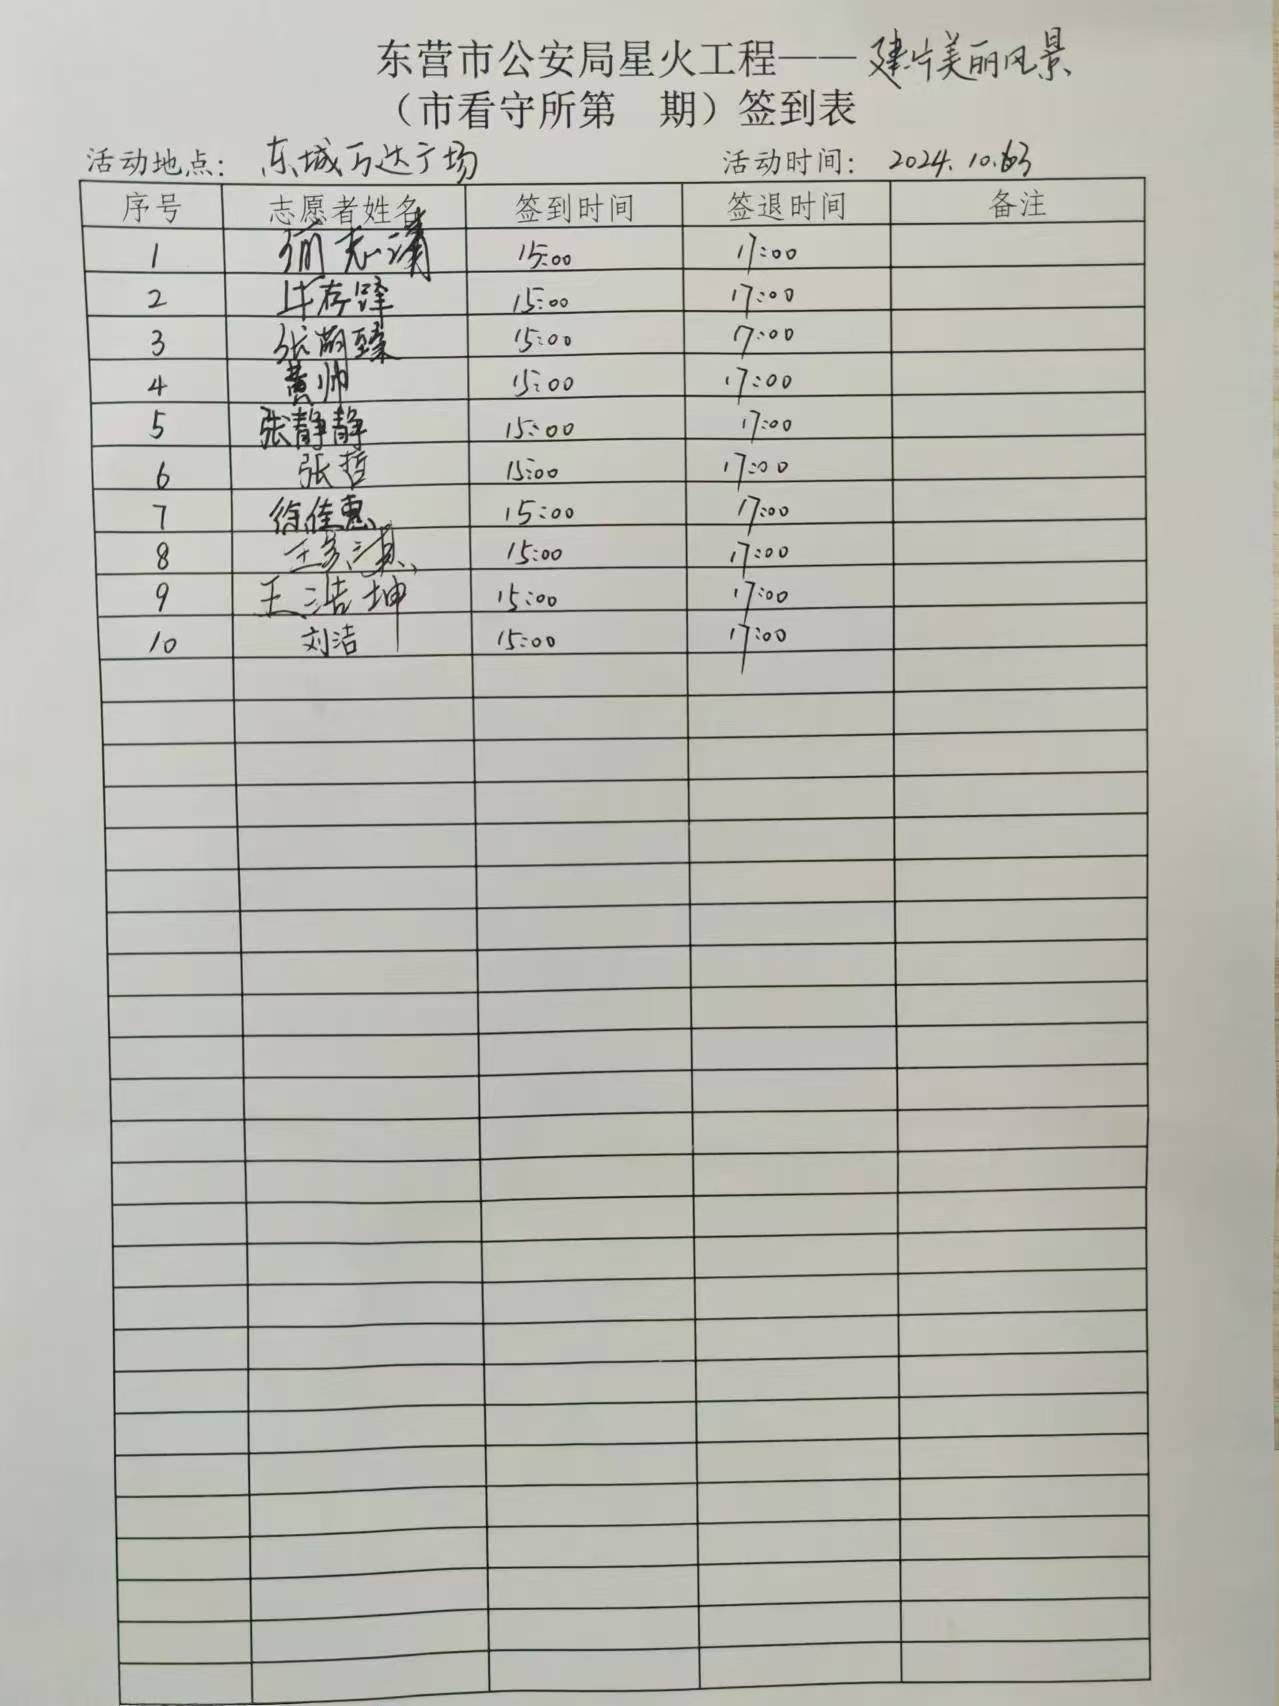 东营市公安局星火工程——建片美丽风景
（市看守所第 期）签到表
活动地点：东城万达广场 活动时间：2024.10.
序号 志愿者姓名 签到时间 签退时间 备注
1 志 15:00 17:00
2 存 15:00 17:00
3 张萌臻 15:00 17:00
4 黄帅 15:00 17:00
5 张静静 15:00 17:00
6 张哲 15:00 17:00
7 徐佳惠 15:00 17:00
8 王 15:00 17:00
9 王浩坤 15:00 17:00
10 刘洁 15:00 17:00